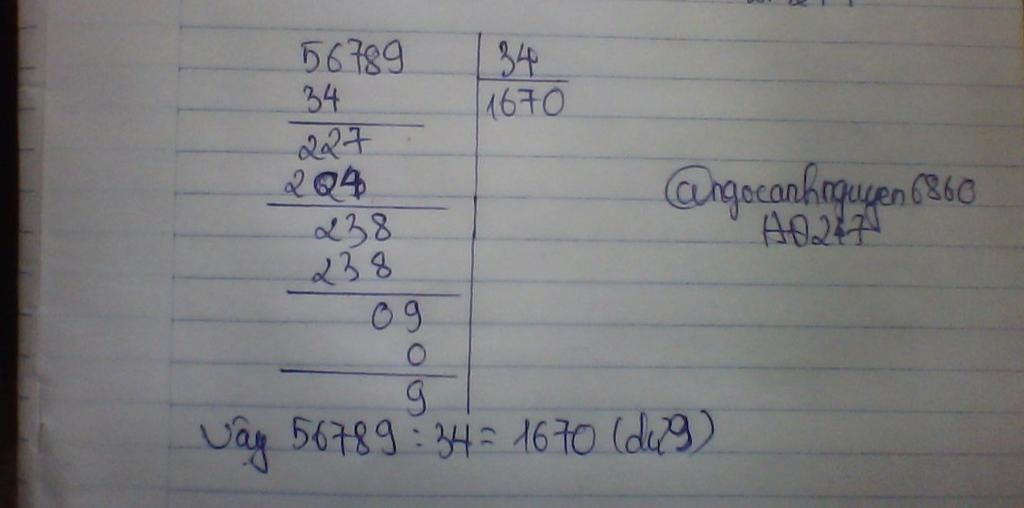 56789 34
34 1670
227
204
238
238
09
0
9
@ngocanhnguyen6860
A0247
Vậy 56789 : 34 = 1670 (dư 9)